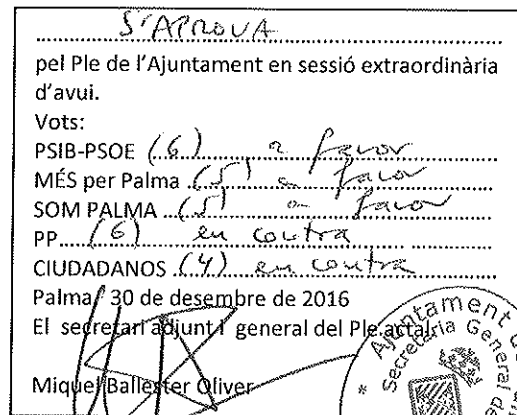 S'APROVA
pel Ple de l'Ajuntament en sessió extraordinària
d'avui.
Vots:
PSIB-PSOE (6) a favor
MÉS per Palma (5) a favor
SOM PALMA (5) a favor
PP (6) en contra
CIUDADANOS (4) en contra
Palma, 30 de desembre de 2016
El secretari adjunt i general del Ple actal.
Miquel Ballester Oliver
Ajuntament de
Secretaria General del